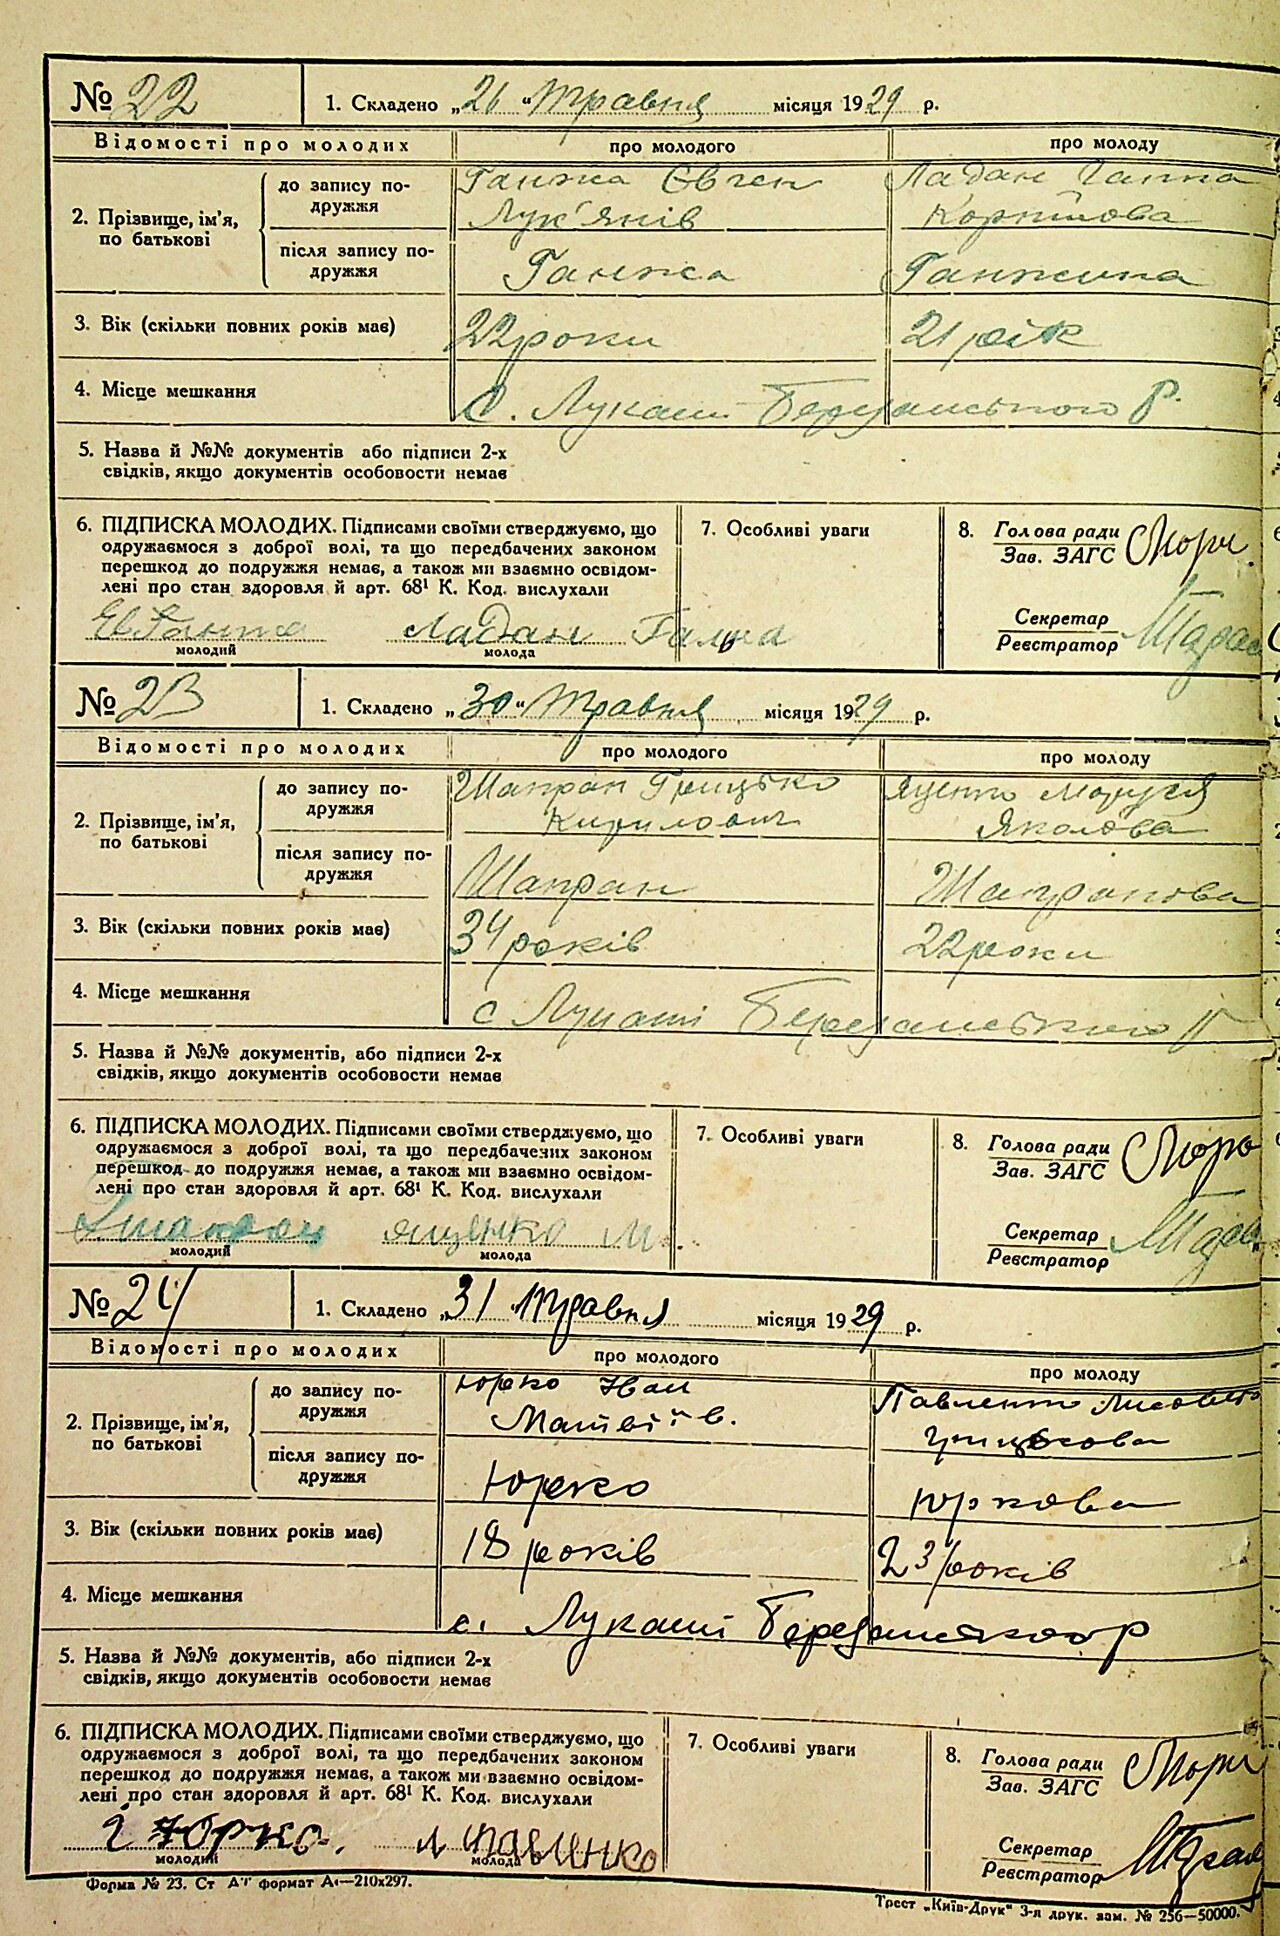 № 22
1. Складено „26“ Травня місяця 1929 р.
Відомості про молодих
про молодого
про молоду
2. Прізвище, ім'я, по батькові
до запису по-
дружжя
Ганжа Євген
Лук'янів
Ладан Ганна
Корнілова
після запису по-
дружжя
Ганжа
Ганжина
3. Вік (скільки повних років має)
22 роки
21 рік
4. Місце мешкання
С. Лукаші Березанського Р.
5. Назва й №№ документів або підписи 2-х
свідків, якщо документів особовости немає
6. ПІДПИСКА МОЛОДИХ. Підписами своїми стверджуємо, що
одружаємося з доброї волі, та що передбачених законом
перешкод до подружжя немає, а також ми взаємно освідом-
лені про стан здоровля й арт. 68¹ К. Код. вислухали
Ев Ганжа
Ладан Гална
молодий
молода
7. Особливі уваги
8. Голова ради
Зав. ЗАГС
Секретар
Реєстратор
№ 23
1. Складено „30“ Травня місяця 1929 р.
Відомості про молодих
про молодого
про молоду
2. Прізвище, ім'я,
по батькові
до запису по-
дружжя
Шапран Грицько
Кирилович
Яценко Маруся
Яколова
після запису по-
дружжя
Шапран
Шапранова
3. Вік (скільки повних років має)
34 років
22 роки
4. Місце мешкання
с Лукаші Березанського Р
5. Назва й №№ документів, або підписи 2-х
свідків, якщо документів особовости немає
6. ПІДПИСКА МОЛОДИХ. Підписами своїми стверджуємо, що
одружаємося з доброї волі, та що передбачених законом
перешкод до подружжя немає, а також ми взаємно освідом-
лені про стан здоровля й арт. 68¹ К. Код. вислухали
Яценко М.
молодий
молода
7. Особливі уваги
8. Голова ради
Зав. ЗАГС
Секретар
Реєстратор
№ 24
1. Складено „31“ Травня місяця 1929 р.
Відомості про молодих
про молодого
про молоду
2. Прізвище, ім'я,
по батькові
до запису по-
дружжя
Юрко Іван
Матвіїв.
Павленко Лисавета
Грицькова
після запису по-
дружжя
Юрко
Юркова
3. Вік (скільки повних років має)
18 років
23 років
4. Місце мешкання
с. Лукаші Березанськог р
5. Назва й №№ документів, або підписи 2-х
свідків, якщо документів особовости немає
6. ПІДПИСКА МОЛОДИХ. Підписами своїми стверджуємо, що
одружаємося з доброї волі, та що передбачених законом
перешкод до подружжя немає, а також ми взаємно освідом-
лені про стан здоровля й арт. 68¹ К. Код. вислухали
І Юрко.
Л Павленко
молодий
молода
7. Особливі уваги
8. Голова ради
Зав. ЗАГС
Секретар
Реєстратор
Форма № 23. Ст А4 формат А4—210х297.
Трест „Київ-Друк“ 3-я друк. зам. № 256—50000.